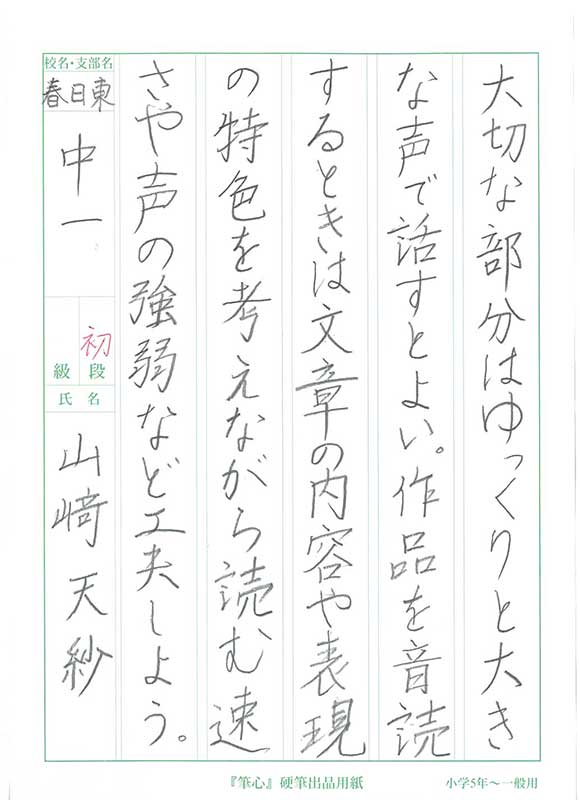 大切な部分はゆっくりと大き
な声で話すとよい。作品を音読
するときは文章の内容や表現
の特色を考えながら読む速
さや声の強弱など工夫しよう。
校名・支部名
春日東
中一
初
級 段
氏 名
山﨑 天紗
『筆心』硬筆出品用紙
小学5年～一般用